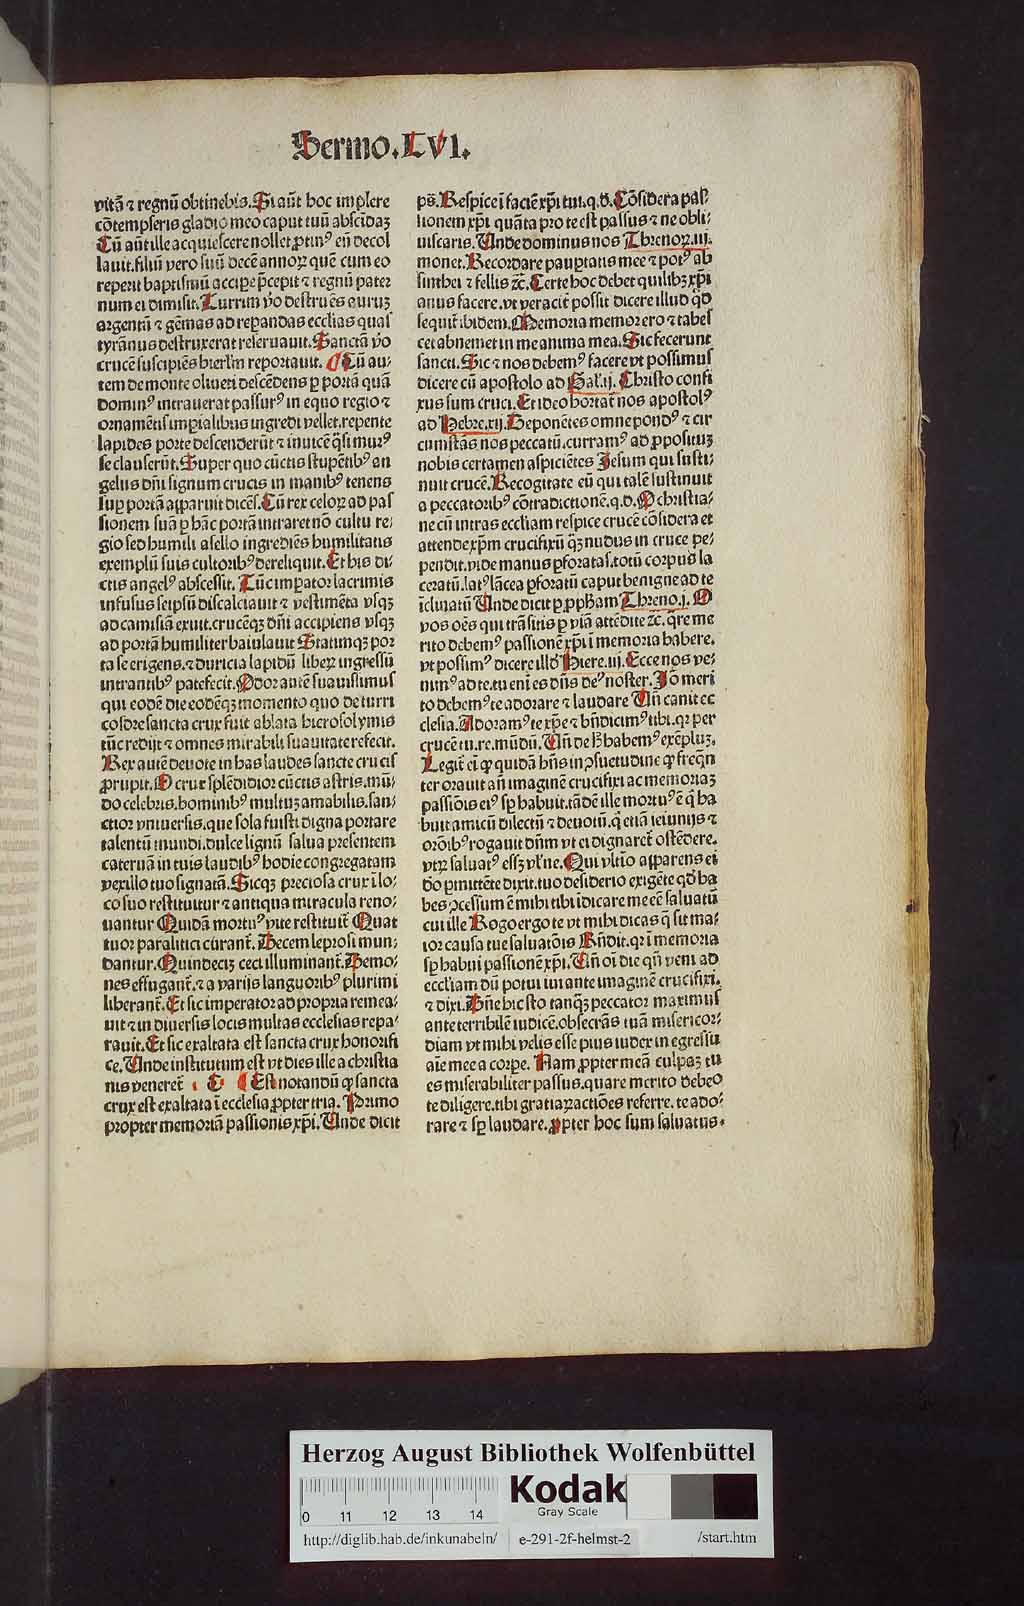 Sermo.LVI.
vitā ⁊ regnū obtinebis. Si aūt hoc implere
cōtempseris gladio meo caput tuū abscidaꝫ
Cū aūt ille acquiescere nollet ꝓtinꝰ eū decol
lauit. filiū vero suū decē annoꝝ quē cum eo
reperit baptismū accipe p̄cepit ⁊ regnū pater
num ei dimisit. Turrim v̄o destruēs auruꝫ
argentū ⁊ gēmas ad repandas ecclias quas
tyrānus destruxerat reseruauit. Sanctā v̄o
crucē suscipiēs hierlm̄ reportauit. ¶ Cū au⸗
tem de monte oliueti descēdens ꝑ portā quā
dominꝰ intrauerat passurꝰ in equo regio ⁊
ornamētis impialibus ingredi vellet. repente
lapides porte descenderūt ⁊ inuicē q̄si murꝰ
se clauserūt. Super quo cūctis stupētibꝰ an
gelus dn̄i signum crucis in manibꝰ tenens
suꝑ portā apparuit dicēs. Cū rex celoꝝ ad pas
sionem suā ꝑ hāc portā intraret nō cultu re⸗
gio sed humili asello ingrediēs humilitatis
exemplū suis cultoribꝰ dereliquit. Et his di⸗
ctis angelꝰ abscessit. Tūc impator lacrimis
infusus seipsū discalciauit ⁊ vestimēta vsqꝫ
ad camisiā exuit. crucēqꝫ dn̄i accipiens vsqꝫ
ad portā humiliter baiulauit Statimqꝫ por
ta se erigens. ⁊ duricia lapidū liberꝝ ingressū
intrantibꝰ patefecit. Odor autē suauissimus
qui eodē die eodēqꝫ momento quo de turri
cosdre sancta crux fuit ablata hierosolymis
tūc redijt ⁊ omnes mirabili suauitate refecit.
Rex autē deuote in has laudes sancte crucis
ꝓrupit. O crux splēdidior cūctis astris. mū⸗
do celebris. hominibꝰ multuꝫ amabilis. san⸗
ctior vniuersis. que sola fuisti digna portare
talentū mundi. dulce lignū salua presentem
cateruā in tuis laudibꝰ hodie congregatam
vexillo tuo signatā. Sicqꝫ preciosa crux ī lo⸗
co suo restituitur ⁊ antiqua miracula reno⸗
uantur Quidā mortuꝰ vite restituit̄ Quat
tuor paralitici curant̄. Decem leprosi mun⸗
dantur. Quindeciꝫ ceci illuminant̄. Demo⸗
nes effugant̄. ⁊ a varijs languoribꝰ plurimi
liberant̄. Et sic imperator ad propria remea⸗
uit ⁊ in diuersis locis multas ecclesias repa⸗
rauit. Et sic exaltata est sancta crux honorifi
ce. Unde institutum est vt dies ille a christia
nis veneret̄ . C. ¶ Est notandū ꝙ sancta
crux est exaltata ī ecclesia ꝓpter tria. Primo
propter memoriā passionis xp̄i. Unde dicit
ps̄. Respice ī faciē xp̄i tui. q.d. Cōsidera pas⸗
sionem xp̄i quāta pro te est passus ⁊ ne obli⸗
uiscaris. Unde dominus nos Threnoꝝ.iij.
monet. Recordare paupertatis mee ⁊ potꝰ ab
sinthei ⁊ fellis ⁊c̄. Certe hoc debet quilibꝫ xp̄i
anus facere. vt veracit̄ possit dicere illud qd̄
sequit̄ ibidem. Memoria memor ero ⁊ tabes
cet ab nemet in me anima mea. Sic fecerunt
sancti. Sic ⁊ nos debemꝰ facere vt possimus
dicere cū apostolo ad Gal̄.ij. Christo confi
xus sum cruci. Et ideo hortat̄ nos apostolꝰ
ad Hebre.xij. Deponētes omne pondꝰ ⁊ cir
cumstās nos peccatū. curramꝰ ad ꝓpositum
nobis certamen aspiciētes Jesum qui susti⸗
nuit crucē. Recogitate eū qui talē sustinuit
a peccatoribꝰ cōtradictionē. q.d. O christia⸗
ne cū intras eccliam respice crucē cōsidera et
attende xp̄m crucifixū qꝫ nudus in cruce pe⸗
pendit. vide manus ꝑforatas. totū corpus la
ceratū. latꝰ lācea ꝑforatū caput benigne ad te
īclinatū Unde dicit ꝑ ꝓphetam Threno.j. O
vos oēs qui trāsitis ꝑ viā attēdite ⁊c̄. qre me
rito debemꝰ passionē xp̄i ī memoria habere.
vt possimꝰ dicere illd̄ Hiere.iij. Ecce nos ve⸗
nimꝰ ad te. tu eni es dn̄s deꝰ noster. Jō meri
to debemꝰ te adorare ⁊ laudare Un̄ canit ec
clesia. Adoramꝰ te xp̄e ⁊ bn̄dicimꝰ tibi. qr per
crucē tu. re. mūdū. Un̄ de h̄ habemꝰ exēpluꝫ.
Legit̄ ei ꝙ quidā hn̄s in ꝯsuetudine ꝙ freqn̄
ter orauit an̄ imaginē crucifixi ac memoriaꝫ
passiōis eiꝰ sꝑ habuit. tādē ille mortuꝰ ē q̄ ha
buit amicū dilectū ⁊ deuotū. q̄ etiā ieiunijs ⁊
orōibꝰ rogauit dn̄m vt ei dignaret̄ ostēdere.
vtꝝ saluatꝰ essꝫ vl̄ ne. Qui vltīo apparens ei
dō ꝑmittēte dixit. tuo desiderio exigēte qd̄ ha
bes ꝯcessum ē mihi tibi īdicare me eē saluatū
cui ille Rogo ergo te vt mihi dicas q̄ sit ma⸗
ior causa tue saluatōis Rn̄dit. qr ī memoria
sꝑ habui passionē xp̄i. Un̄ oī die qn̄ veni ad
eccliam dū potui iui ante imaginē crucifixi.
⁊ dixi. Dn̄e hic sto tanqꝫ peccator maximus
ante terribilē iudicē. obsecrās tuā misericor⸗
diam vt mihi velis esse pius iudex in egressu
aīe mee a corpe. Nam ꝓpter meā culpaꝫ tu
es miserabiliter passus. quare merito debeo
te diligere. tibi gratiaꝝ actiōes referre. te ado⸗
rare ⁊ sꝑ laudare. ꝓpter hoc sum saluatus.
Herzog August Bibliothek Wolfenbüttel
0 11 12 13 14
Kodak
Gray Scale
http://diglib.hab.de/inkunabeln/ e-291-2f-helmst-2 /start.htm